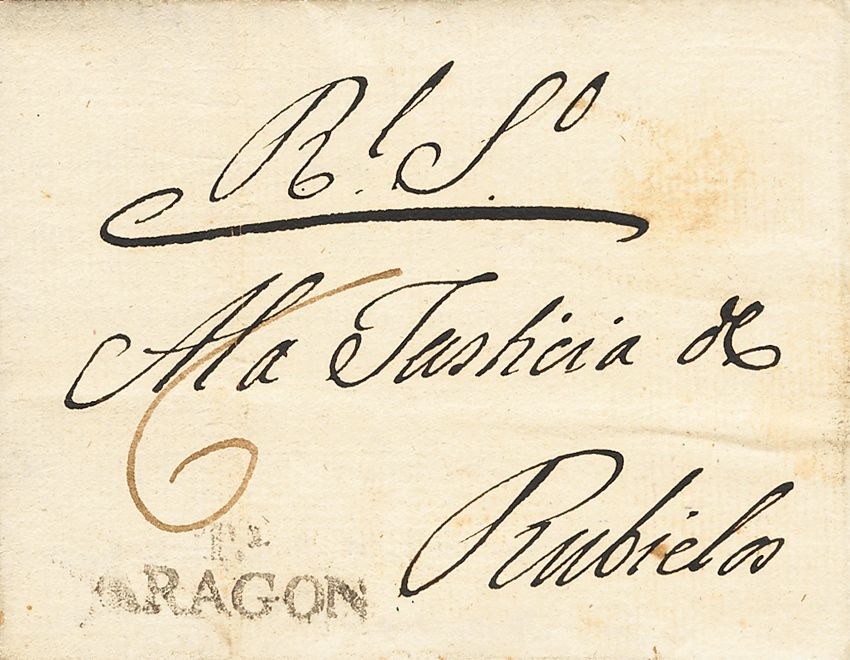 R.l S.o
A la Justicia de
6
Rubielos
ARAGON